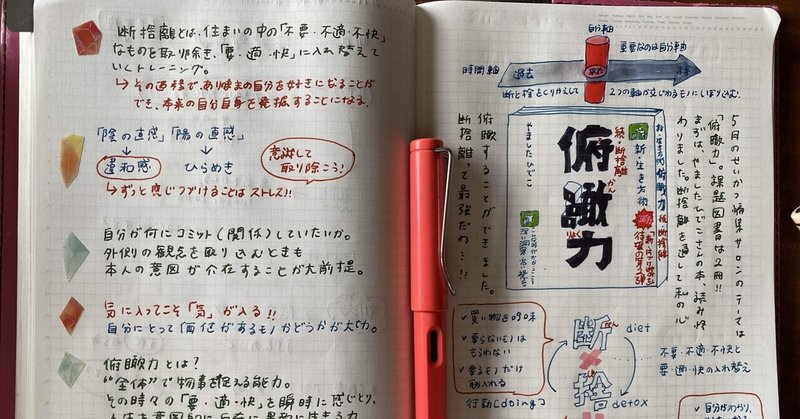 断捨離とは、住まいの中の「不要・不適・不快」
なものを取り除き、「要・適・快」に入れ替えて
いくトレーニング。
↳その過程で、ありのままの自分を好きになることが
でき、本来の自分自身を発掘することになる。
「陰の直感」「陽の直感」
違和感
ひらめき
意識して
取り除こう!
↳ずっと感じつづけることはストレス!!
自分が何にコミット(関係)していたいか。
外側の観念を取り込むときも
本人の意図が介在することが大前提。
気に入ってこそ「気」が入る!!
自分にとって「価値があるモノ」かどうかが大切。
俯瞰力とは?
"全体"で物事を捉える能力。
その時々の「要・適・快」を瞬時に感じとり、
自分軸
重要なのは自分軸
時間軸
過去
現在
未来
断と捨をくりかえして
2つの軸が交じわるモノにしぼり込む。
5月のせいかつ編集サロンのテーマは
「俯瞰力」。課題図書は2冊!!
まずは、やましたひでこさんの本、読み終
わりました。断捨離を通して私の心
俯瞰力
続・断捨離
新・生き方術
やましたひでこ
俯瞰することができました。
断捨離って最強だわ…!!
買い物を吟味
要らないモノは
もらわない
要るモノだけ
招入れる
行動[doing]
断
だん
diet
捨
しゃ
detox
不要・不適・不快と
要・適・快の入れ替え
自分がわかり、